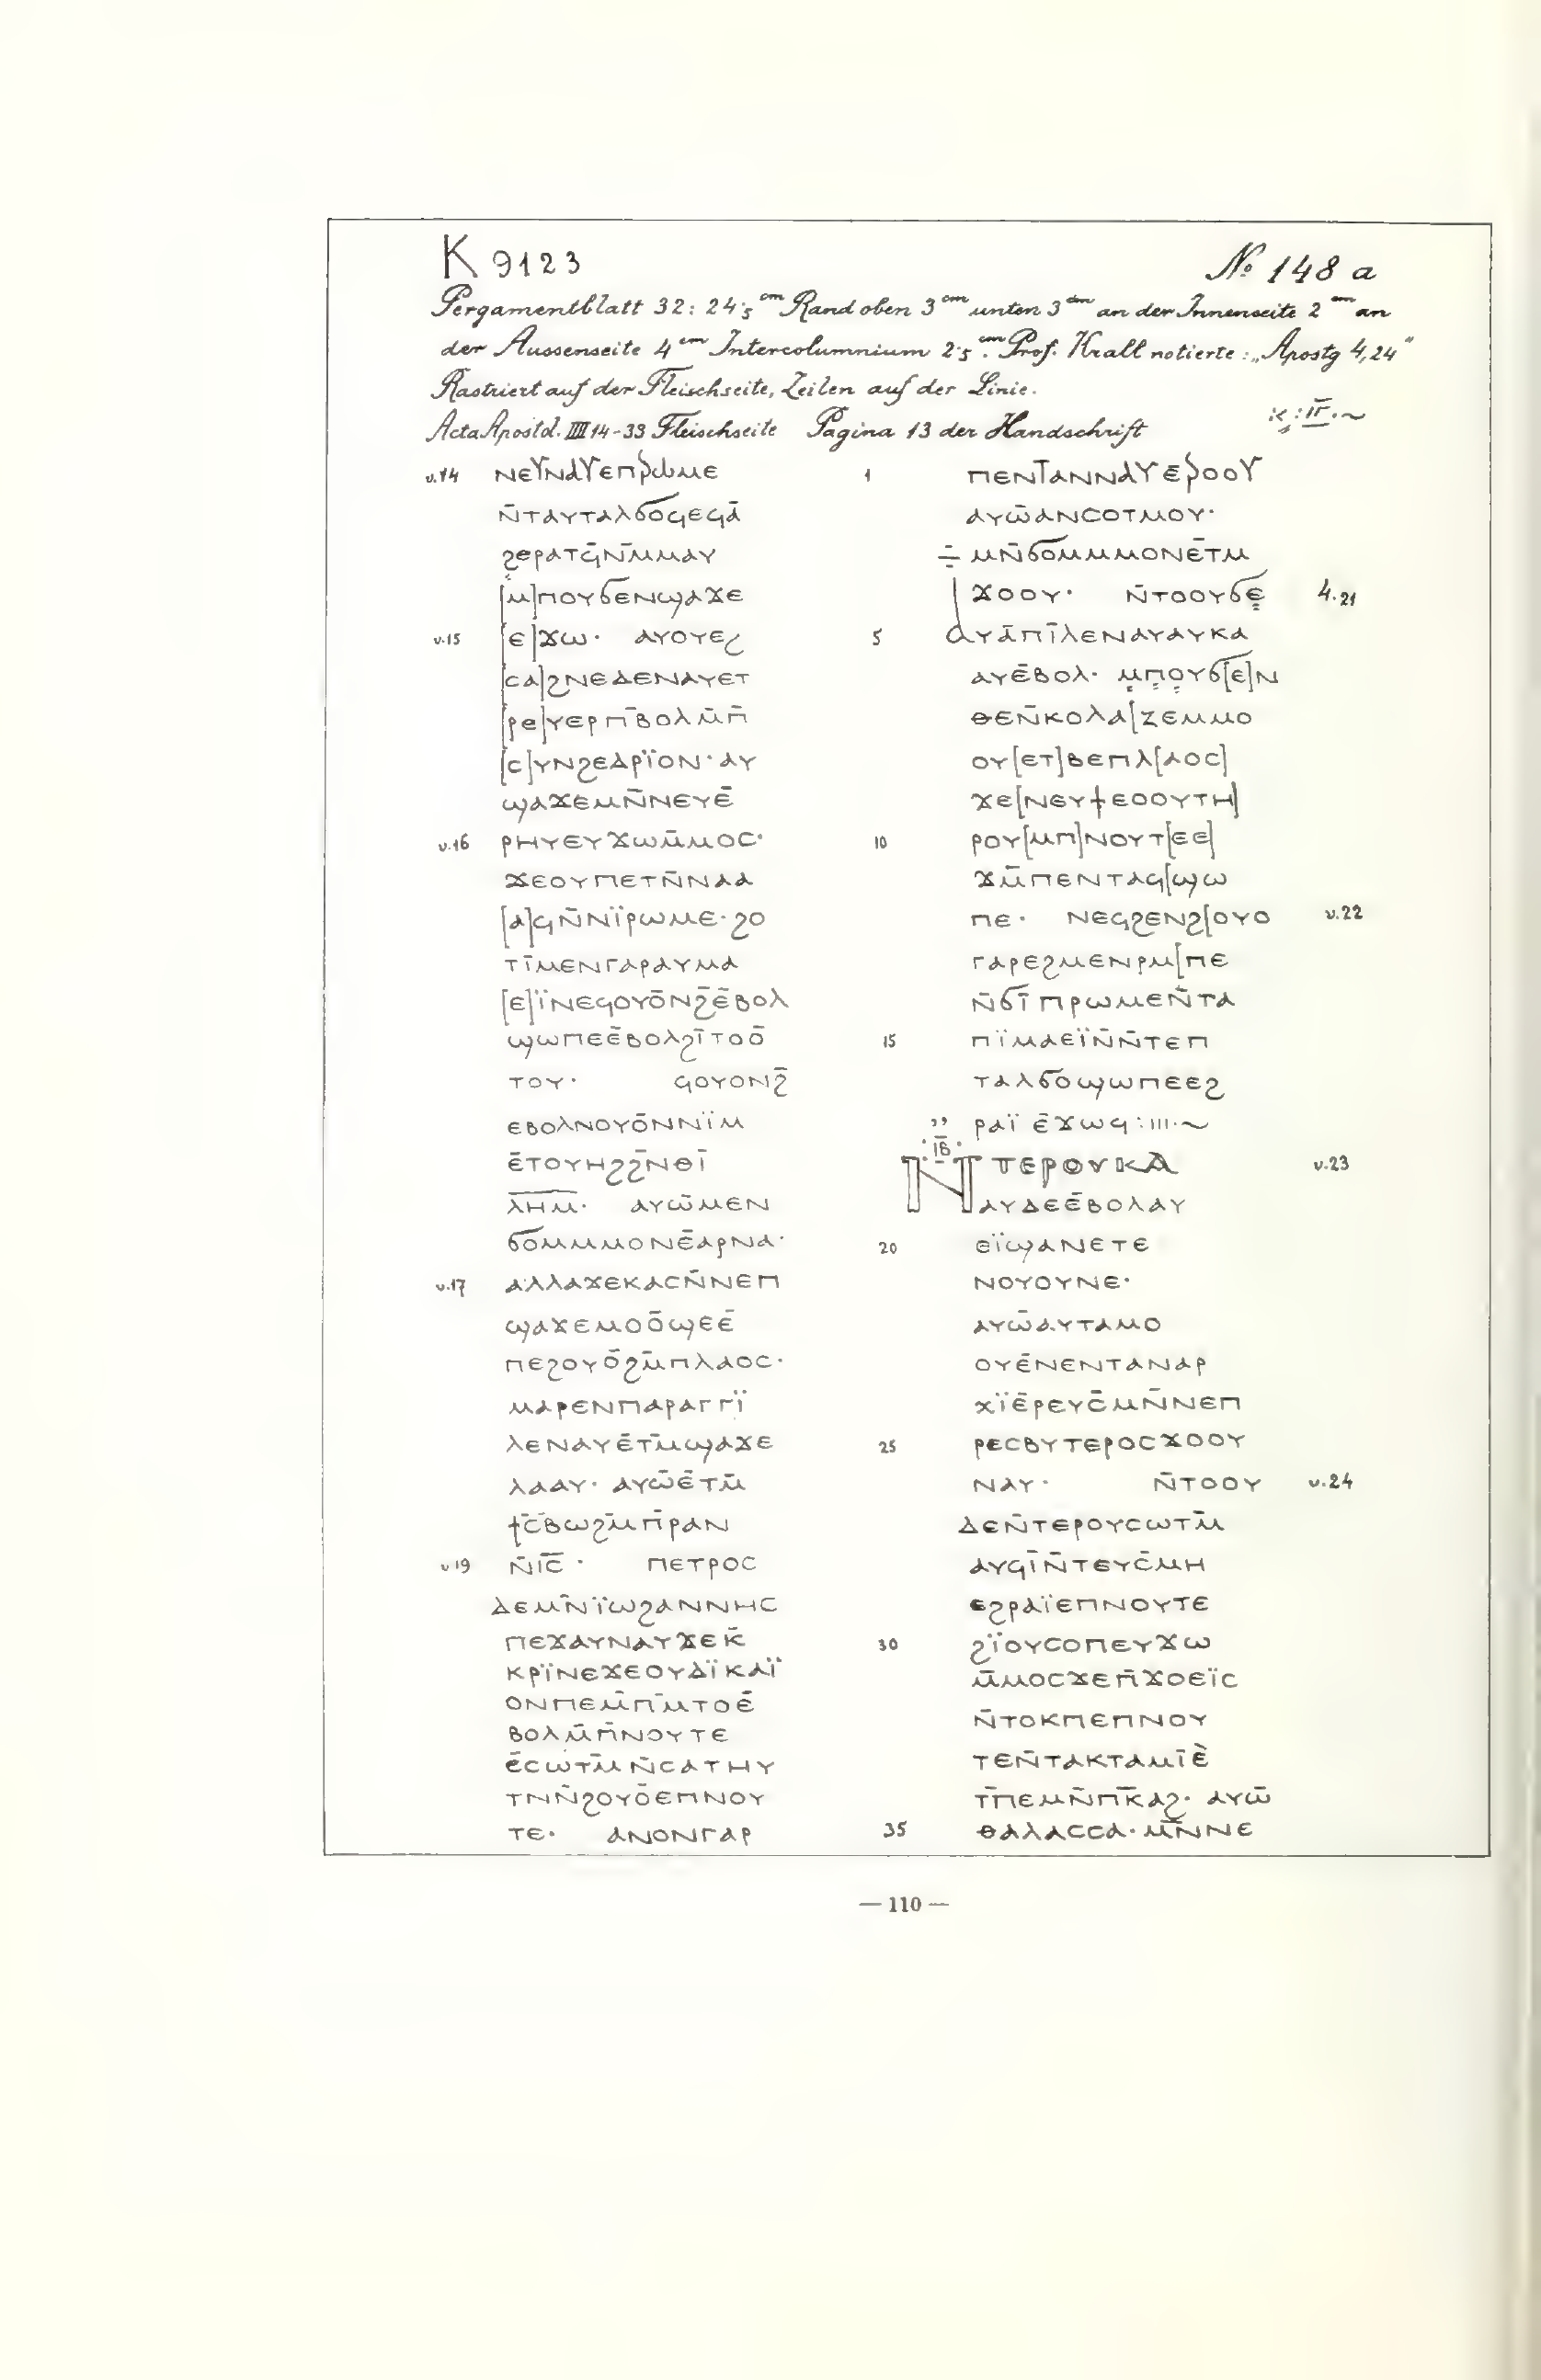 K 9123
№ 148 a
Pergamentblatt 32 : 24·5 cm Rand oben 3 cm unten 3 cm an der Innenseite 2 cm an
der Aussenseite 4 cm Intercolumnium 2·5 cm. Prof. Krall notierte : „Apostg 4,24"
Rastriert auf der Fleischseite, Zeilen auf der Linie.
Acta Apostol. IIII 14-33 Fleischseite Pagina 13 der Handschrift
v.14 ⲛⲉⲩⲛⲁⲩⲉⲡⲣⲱⲙⲉ
ⲛ̄ⲧⲁⲩⲧⲁⲗϭⲟϥⲉϥⲁ̄
ϩⲉⲣⲁⲧϥ̄ⲛⲙ̄ⲙⲁⲩ
[ⲙ]ⲡⲟⲩϭⲉⲛϣⲁϫⲉ
v.15 [ⲉ]ϫⲱ· ⲁⲩⲟⲩⲉϩ
[ⲥⲁ]ϩⲛⲉⲇⲉⲛⲁⲩⲉⲧ
[ⲣⲉ]ⲩⲉⲣⲡⲃ̄ⲟⲗⲙ̄ⲡ̄
[ⲥ]ⲩⲛϩⲉⲇⲣⲓ̈ⲟⲛ·ⲁⲩ
ϣⲁϫⲉⲙⲛ̄ⲛⲉⲩⲉ̄
v.16 ⲣⲏⲩⲉⲩϫⲱⲙ̄ⲙⲟⲥ·
ϫⲉⲟⲩⲡⲉⲧⲛ̄ⲛⲁⲁ
[ⲁ]ϥⲛ̄ⲛⲓ̈ⲣⲱⲙⲉ·ϩⲟ
ⲧⲓ̄ⲙⲉⲛⲅⲁⲣⲁⲩⲙⲁ
[ⲉ]ⲓ̈ⲛⲉϥⲟⲩⲟ̄ⲛϩ̄ⲉ̄ⲃⲟⲗ
ϣⲱⲡⲉⲉ̄ⲃⲟⲗϩⲓ̄ⲧⲟⲟ̄
ⲧⲟⲩ· ϥⲟⲩⲟⲛϩ̄
ⲉⲃⲟⲗⲛⲟⲩⲟ̄ⲛⲛⲓ̈ⲙ
ⲉ̄ⲧⲟⲩⲏϩϩ̄ⲛⲑⲓ̄
ⲗ̄ⲏ̄ⲙ̄· ⲁⲩⲱ̄ⲙⲉⲛ
ϭⲟⲙⲙⲙⲟⲛⲉ̄ⲁⲣⲛⲁ·
v.17 ⲁⲗⲗⲁϫⲉⲕⲁⲥⲛ̄ⲛⲉⲡ
ϣⲁϫⲉⲙⲟⲟ̄ϣⲉⲉ̄
ⲡⲉϩⲟⲩⲟ̄ϩⲙ̄ⲡⲗⲁⲟⲥ·
ⲙⲁⲣⲉⲛⲡⲁⲣⲁⲅⲅⲓ̈
ⲗⲉⲛⲁⲩⲉ̄ⲧⲙ̄ϣⲁϫⲉ
ⲗⲁⲁⲩ· ⲁⲩⲱ̄ⲉ̄ⲧⲙ̄
ϯⲥ̄ⲃⲱϩⲙ̄ⲡ̄ⲣⲁⲛ
v.19 ⲛ̄ⲓ̄ⲥ̄· ⲡⲉⲧⲣⲟⲥ
ⲇⲉⲙⲛ̄ⲓ̈ⲱϩⲁⲛⲛⲏⲥ
ⲡⲉϫⲁⲩⲛⲁⲩϫⲉⲕ̄
ⲕⲣⲓ̈ⲛⲉϫⲉⲟⲩⲇⲓ̈ⲕⲁⲓ̈
ⲟⲛⲡⲉⲙ̄ⲡⲙ̄ⲧⲟⲉ̄
ⲃⲟⲗⲙ̄ⲡ̄ⲛⲟⲩⲧⲉ
ⲉ̄ⲥⲱⲧⲙ̄ⲛ̄ⲥⲁⲧⲏⲩ
ⲧⲛⲛ̄ϩⲟⲩⲟ̄ⲉⲡⲛⲟⲩ
ⲧⲉ· ⲁⲛⲟⲛⲅⲁⲣ
1 ⲡⲉⲛⲧⲁⲛⲛⲁⲩⲉ̄ⲣⲟⲟⲩ
ⲁⲩⲱ̄ⲁⲛⲥⲟⲧⲙⲟⲩ·
ⲙⲛ̄ϭⲟⲙⲙⲙⲟⲛⲉ̄ⲧⲙ
ϫⲟⲟⲩ· ⲛ̄ⲧⲟⲟⲩϭⲉ 4.21
5 ⲁⲩⲁ̄ⲡⲓ̄ⲗⲉⲛⲁⲩⲁⲩⲕⲁ
ⲁⲩⲉ̄ⲃⲟⲗ· ⲙⲡⲟⲩϭ[ⲉ]ⲛ
ⲑⲉⲛ̄ⲕⲟⲗⲁ[ⲍⲉⲙⲙⲟ
ⲟⲩ[ⲉⲧ]ⲃⲉⲡⲗ[ⲁⲟⲥ]
ϫⲉ[ⲛⲉⲩϯⲉⲟⲟⲩⲧⲏ]
10 ⲣⲟⲩ[ⲙⲡ]ⲛⲟⲩⲧ[ⲉⲉ]
ϫⲙ̄ⲡⲉⲛⲧⲁϥ[ϣⲱ
ⲡⲉ· ⲛⲉϥϩⲉⲛϩ[ⲟⲩⲟ v.22
ⲅⲁⲣⲉϩⲙⲉⲛⲣⲙ[ⲡⲉ
ⲛ̄ϭⲓ̄ⲡⲣⲱⲙⲉⲛ̄ⲧⲁ
15 ⲡⲓ̈ⲙⲁⲉⲓ̈ⲛ̄ⲛ̄ⲧⲉⲡ
ⲧⲁⲗϭⲟϣⲱⲡⲉⲉϩ
ⲣⲁⲓ̈ ⲉ̄ϫⲱϥ:ⲓⲓⲓ·~
·ⲓ̄ⲃ̄·
ⲛⲧⲉⲣⲟⲩⲕⲁ v.23
ⲁⲩⲇⲉⲉ̄ⲃⲟⲗⲁⲩ
20 ⲉⲓ̈ϣⲁⲛⲉⲧⲉ
ⲛⲟⲩⲟⲩⲛⲉ·
ⲁⲩⲱ̄ⲁⲩⲧⲁⲙⲟ
ⲟⲩⲉ̄ⲛⲉⲛⲧⲁⲛⲁⲣ
ⲭⲓ̈ⲉ̄ⲣⲉⲩⲥ̄ⲙⲛ̄ⲛⲉⲡ
25 ⲣⲉⲥⲃⲩⲧⲉⲣⲟⲥϫⲟⲟⲩ
ⲛⲁⲩ· ⲛ̄ⲧⲟⲟⲩ v.24
ⲇⲉⲛ̄ⲧⲉⲣⲟⲩⲥⲱⲧⲙ̄
ⲁⲩϥⲓ̄ⲛ̄ⲧⲉⲩⲥ̄ⲙⲏ
ⲉϩⲣⲁⲓ̈ⲉⲡⲛⲟⲩⲧⲉ
30 ϩⲓ̈ⲟⲩⲥⲟⲡⲉⲩϫⲱ
ⲙ̄ⲙⲟⲥϫⲉⲡ̄ϫⲟⲉⲓ̈ⲥ
ⲛ̄ⲧⲟⲕⲡⲉⲡⲛⲟⲩ
ⲧⲉⲛ̄ⲧⲁⲕⲧⲁⲙⲓ̄ⲉ̀
ⲧ̄ⲡⲉⲙⲛ̄ⲡ̄ⲕⲁϩ· ⲁⲩⲱ̄
35 ⲑⲁⲗⲁⲥⲥⲁ·ⲙⲛ̄ⲛⲉ
— 110 —